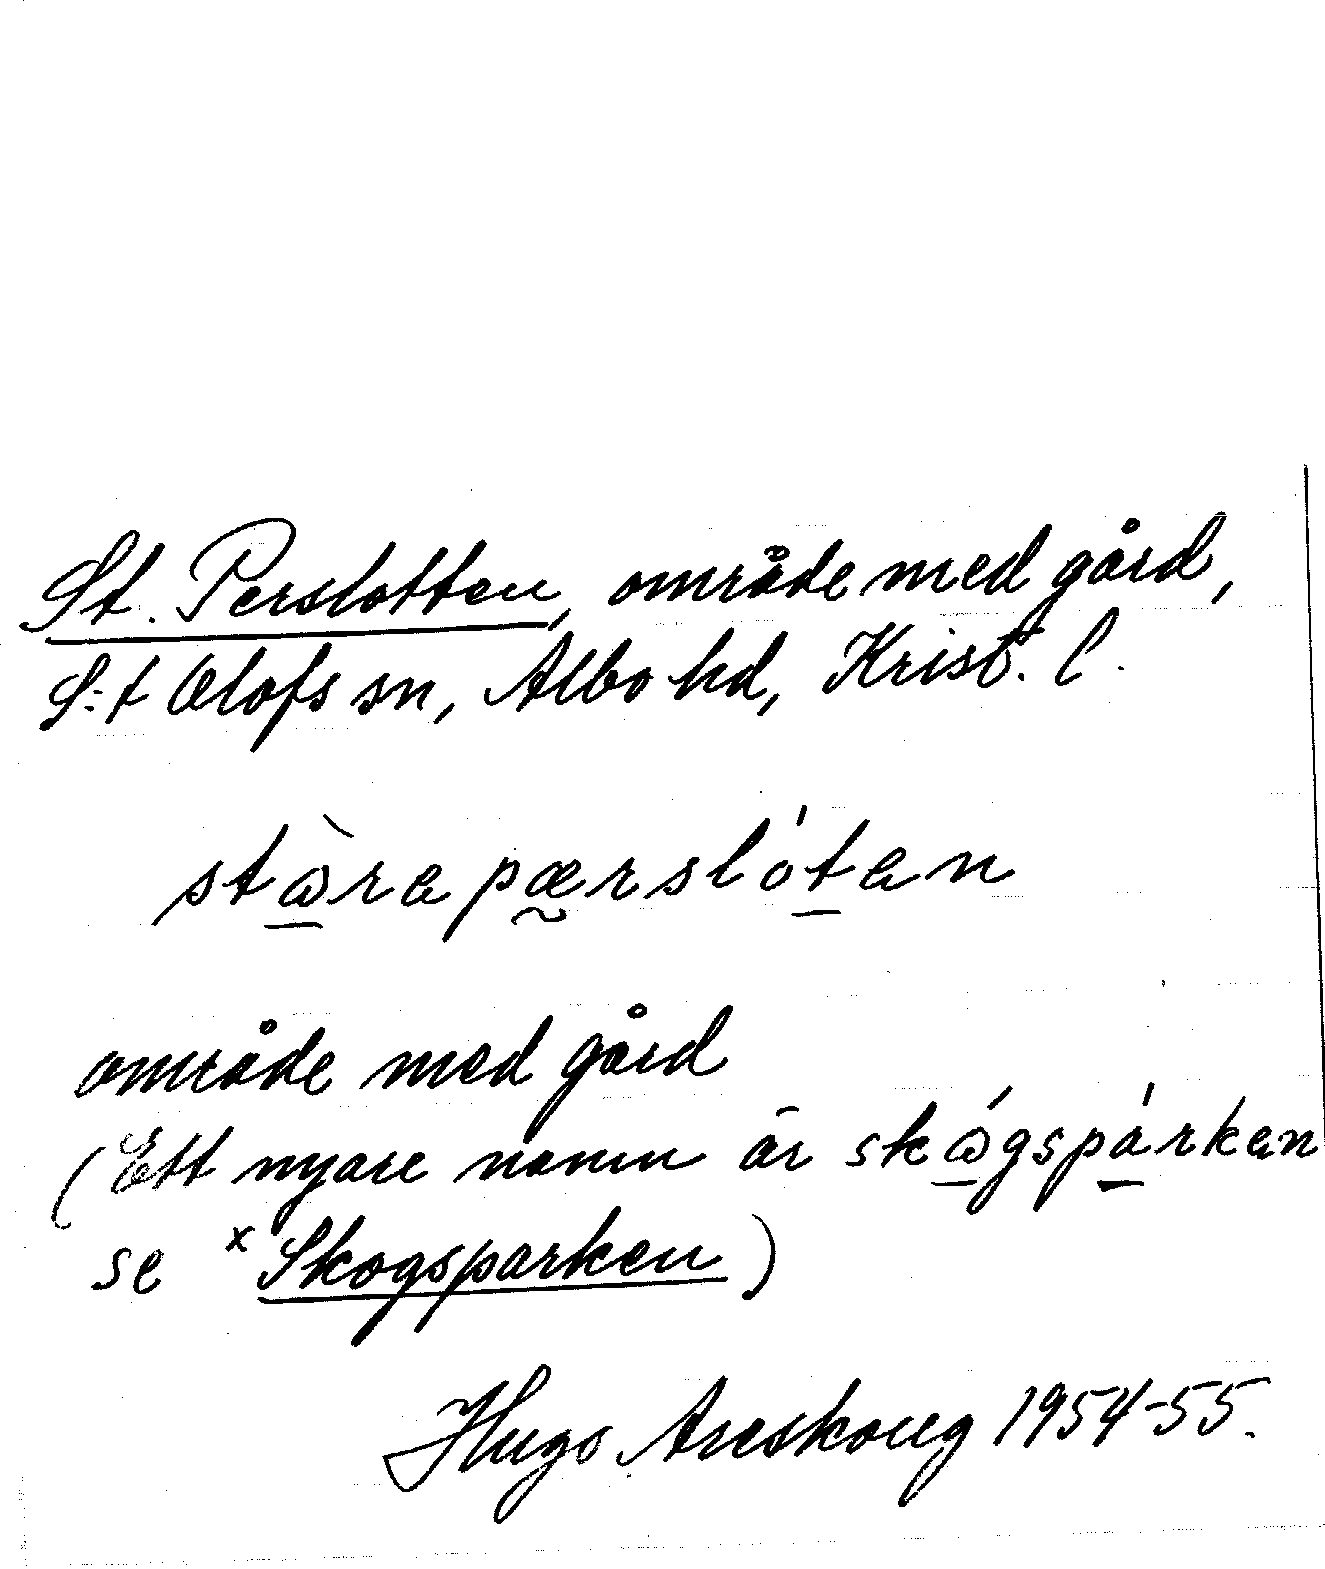 St. Perslotten, område med gård,
S:t Olofs sn, Albo hd, Krist. l.
stὰ̱rapæ̰rslóṯan
område med gård
(Ett nyare namn är skǻ̱gspá̱rkan
se ˣSkogsparken)
Hugo Areskoug 1954-55.